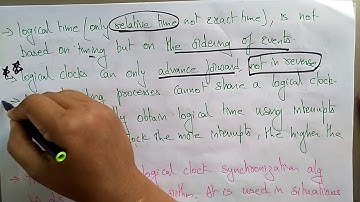 → logical time (only relative time not exact time), is not
based on timing but on the ordering of events.
→ logical clocks can only advance forward, not in reverse
processes cannot share a logical clock
obtain logical time using interrupts
clock the more interrupts, the higher the
logical clock synchronization alg
It is used in situations